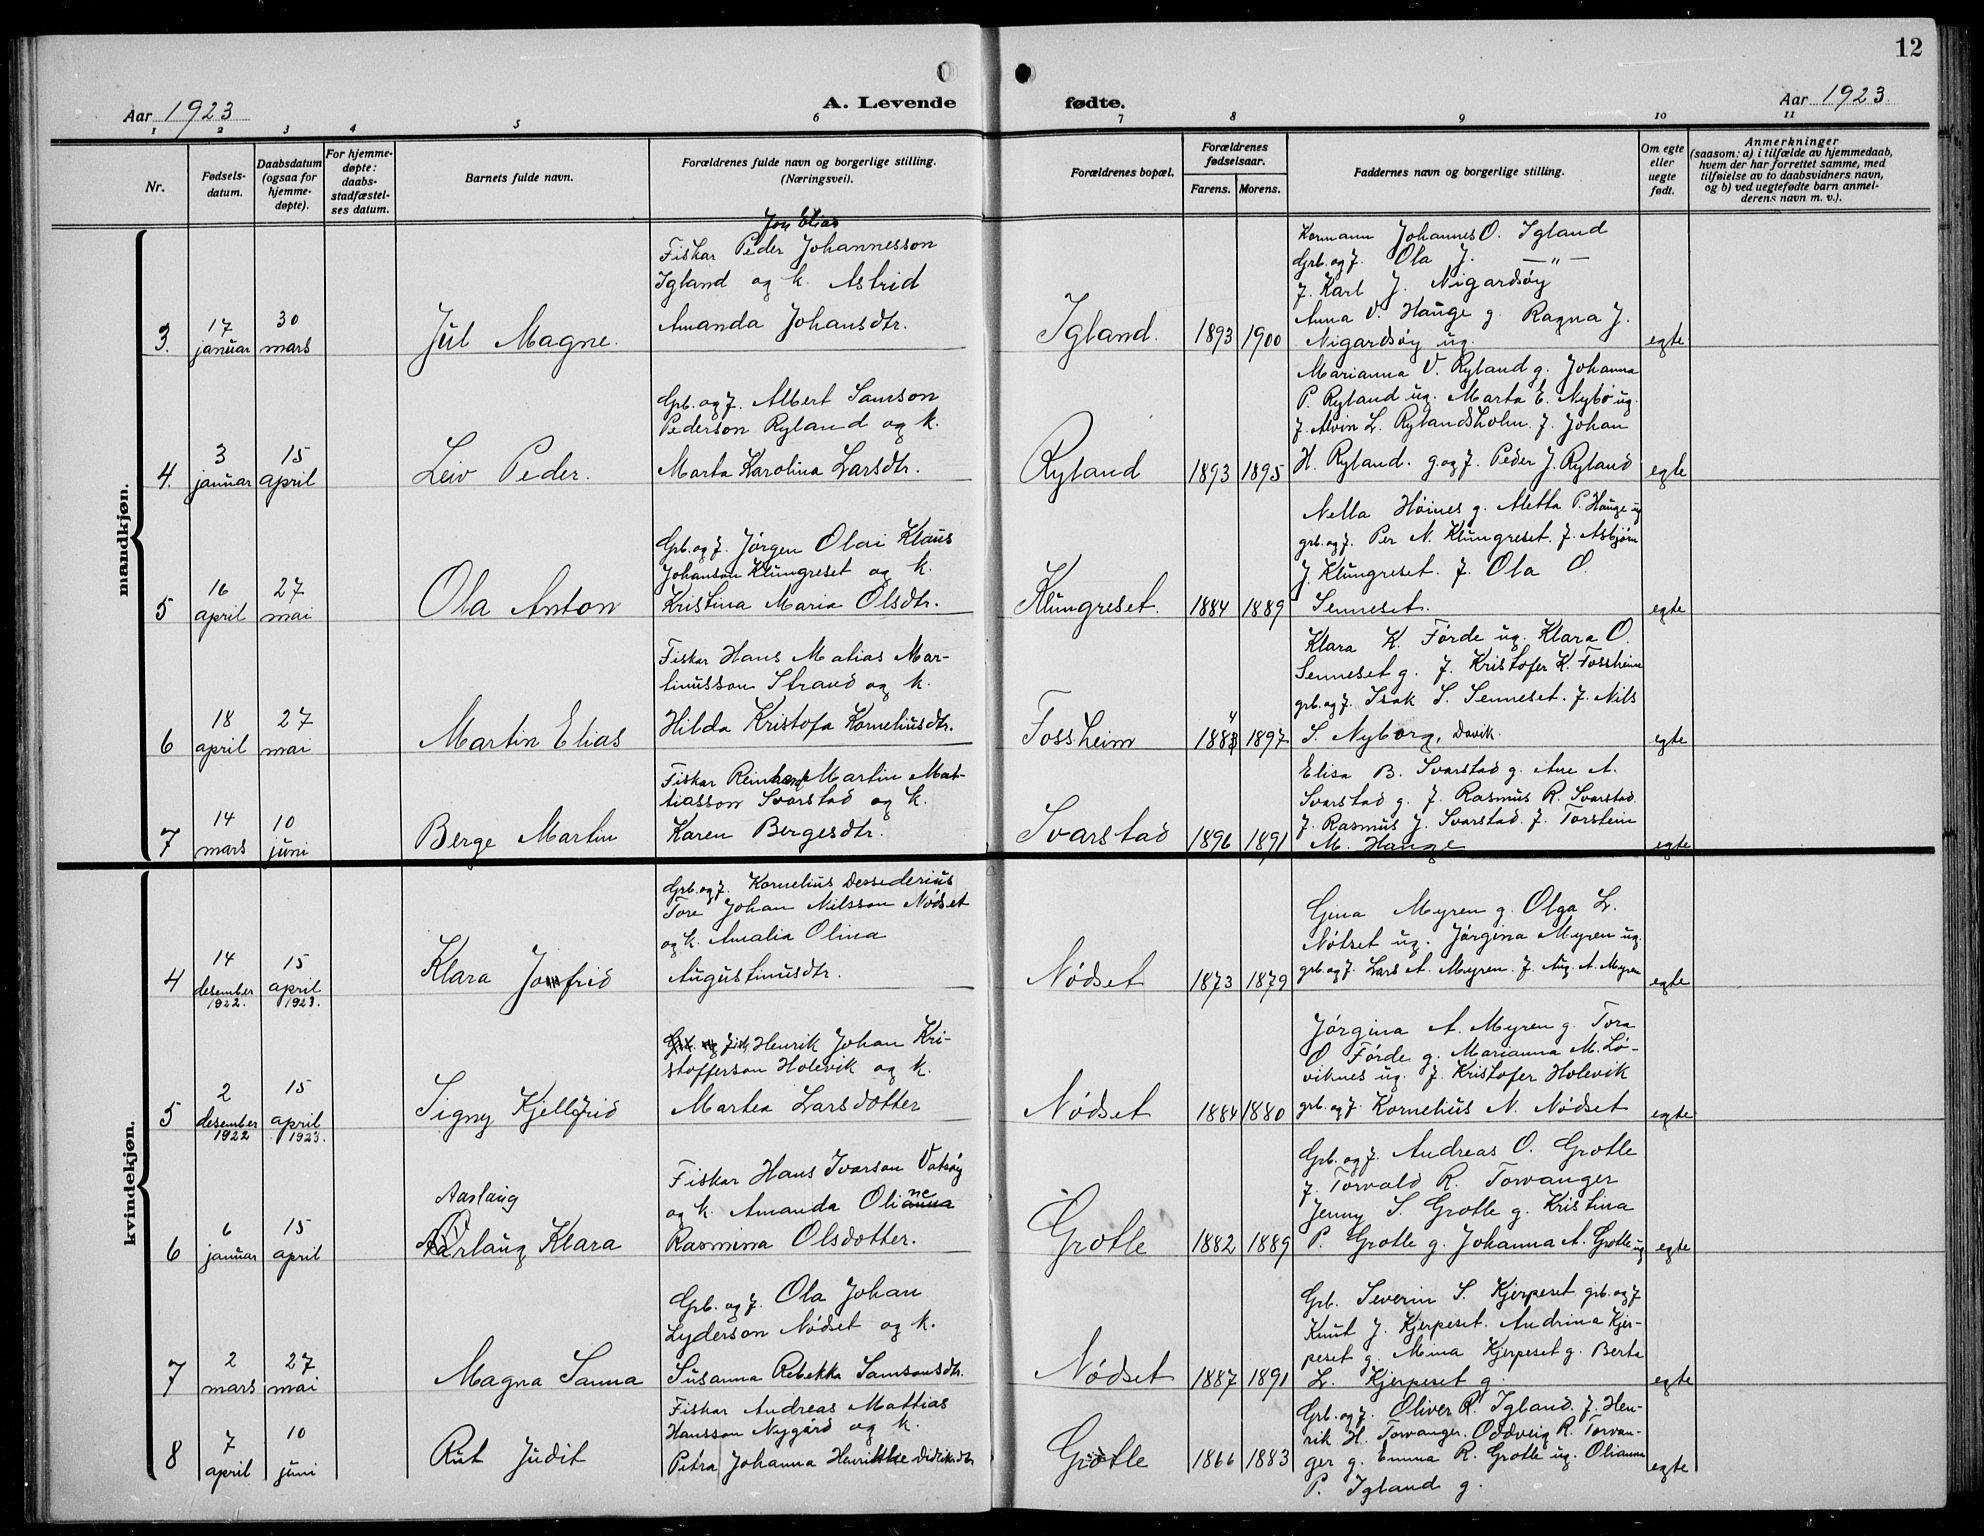 12
Aar 1923
A. Levende
fødte.
Aar 1923.
1 2 3 4 5 6 7 8 9 10 11
Nr.
Fødsels-
datum.
Daabsdatum
(ogsaa for
hjemme-
døpte).
For hjemme-
døpte:
daabs-
stadfæstel-
ses datum.
Barnets fulde navn.
Forældrenes fulde navn og borgerlige stilling.
(Næringsvei).
Forældrenes bopæl.
Forældrenes
fødselsaar.
Farens. Morens.
Faddernes navn og borgerlige stilling.
Om egte
eller
uegte
født.
Anmerkninger
(saasom: a) i tilfælde av hjemmedaab,
hvem der har forrettet samme, med
tilføielse av to daabsvidners navn,
og b) ved uegtefødte barn anmel-
derens navn m. v.).
mandkjøn.
3. 17 januar 30 mars
Jul Magne.
Jon Elias
Fiskar Peder Johannesson
Igland og k. Astrid
Amanda Johansdtr.
Igland. 1893 1900
Kormann Johannes O. Igland
Grb. og f. Ola J. —"—
f. Karl J. Nigardsøy
Anna V. Hauge g. Ragna J.
Nigardsøy ug.
egte
4. 3 januar 15 april
Leiv Peder.
Grb. og f. Albert Samson
Pederson Ryland og k.
Marta Karolina Larsdtr.
Ryland 1893 1895
Marianna V. Ryland g. Johanna
P. Ryland ug. Marta E. Nybø ug.
f. Alvin L. Rylandsholm. f. Johan
H. Ryland. g. og f. Peder J. Ryland
egte
5 16 april 27 mai
Ola Anton
Grb. og f. Jørgen Olai Klaus
Johanson Klungreset og k.
Kristina Maria Olsdtr.
Klungreset. 1884 1889
Nella Høines g. Aletta P. Hauge ug
grb. og f. Per N. Klungreset. f. Asbjørn
J. Klungreset. f. Ola O.
Senneset.
egte
6 18 april 27 mai
Martin Elias
Fiskar Hans Matias Mar-
tinusson Strand og k.
Hilda Kristofa Kornelíusdtr.
Fossheim 1883 4 1897
Klara K. Førde ug. Klara O.
Senneset g. f. Kristofer K. Fossheim
grb. og f. Isak S. Senneset. f. Nils
S. Nyborg, Davik.
egte
7 14 mars 10 juni
Berge Martin
Fiskar Reinhard Martin Mat-
tiasson Svarstad og k.
Karen Bergesdtr.
Svarstad 1896 1891
Elisa B. Svarstad g. Ane A.
Svarstad g. f. Rasmus R. Svarstad
f. Rasmus J. Svarstad. f. Torstein
M. Hauge
egte
kvindekjøn.
4 14 desember 1922. 15 april 1923.
Klara Jonfrid
Grb. og f. Kornelius Dessederius
Tore Johan Nilsson Nødset
og k. Amalia Olina
Augustinusdtr.
Nødset 1873 1879
Gina Myren g. Olga L.
Nøtset ug. Jørgina Myren ug.
grb. og f. Lars A. Myren. f. Aug. A. Myren
egte
5 2 desember 1922 15 april 1923.
Signy Kjellfrid
Grb. og fisk. Henrik Johan Kri-
stofferson Holevik og k.
Martea Larsdotter
Nødset 1884 1880
Jørgina A. Myren g. Tora
O. Førde g. Marianna M. Lø-
viknes ug. f. Kristofer Holevik
grb. og f. Kornelius N. Nødset
egte
6 6 januar 15 april
Aaslaug
Klara
Fiskar Hans Ivarson Vatsøy
og k. Amanda Olianna ne
Rasmina Olsdotter.
Grotle 1882 1889
Grb. og f. Andreas O. Grotle
f. Torvald R. Torvanger
Jenny S. Grotle g. Kristina
P. Grotle g. Johanna A. Grotle ug
egte
7 2 mars 27 mai
Magna Sanna
Grb. og f. Ola Johan
Lyderson Nødset og k.
Susanna Rebekka Samsonsdtr.
Nødset 1887 1891
Grb. Severin S. Kjerpeset grb. og f
Knut J. Kjerpeset. Andrina Kjer-
peset g. Mina Kjerpeset g. Berta
L. Kjerpeset g.
egte
8 7 april 10 juni
Rut Judit
Fiskar Andreas Mattias
Hansson Nygård og k.
Petra Johanna Henrikke Didriksdtr
Grotle 1866 1883
Grb. og f. Oliver R. Igland. f. Hen-
rik H. Torvanger. Oddveig R. Torvan-
ger g. Emma R. Grotle ug. Olianna
P. Igland g.
egte